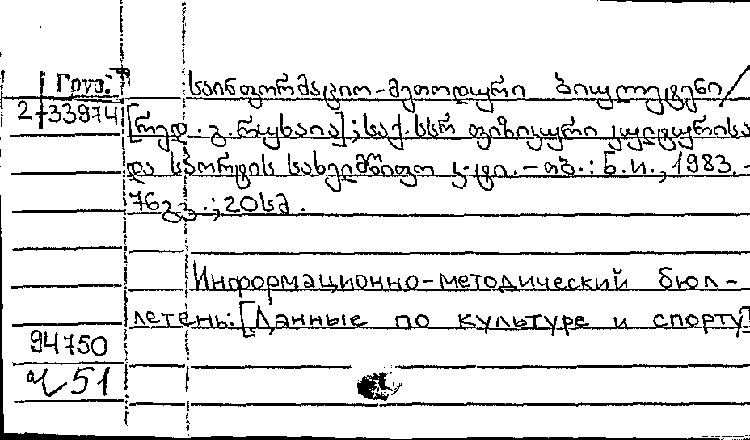 Груз.
საინფორმაციო-მეთოდური ბიულეტენი/
2-33974
[რედ. გ. რუხაია]; საქ. სსრ ფიზიკური კულტურისა
და სპორტის სახელმწიფო კ-ტი. - თბ.: Б.и., 1983. -
76გვ.; 20სმ.
Информационно-методический бюл-
летень: [Данные по культуре и спорту]
94750
51